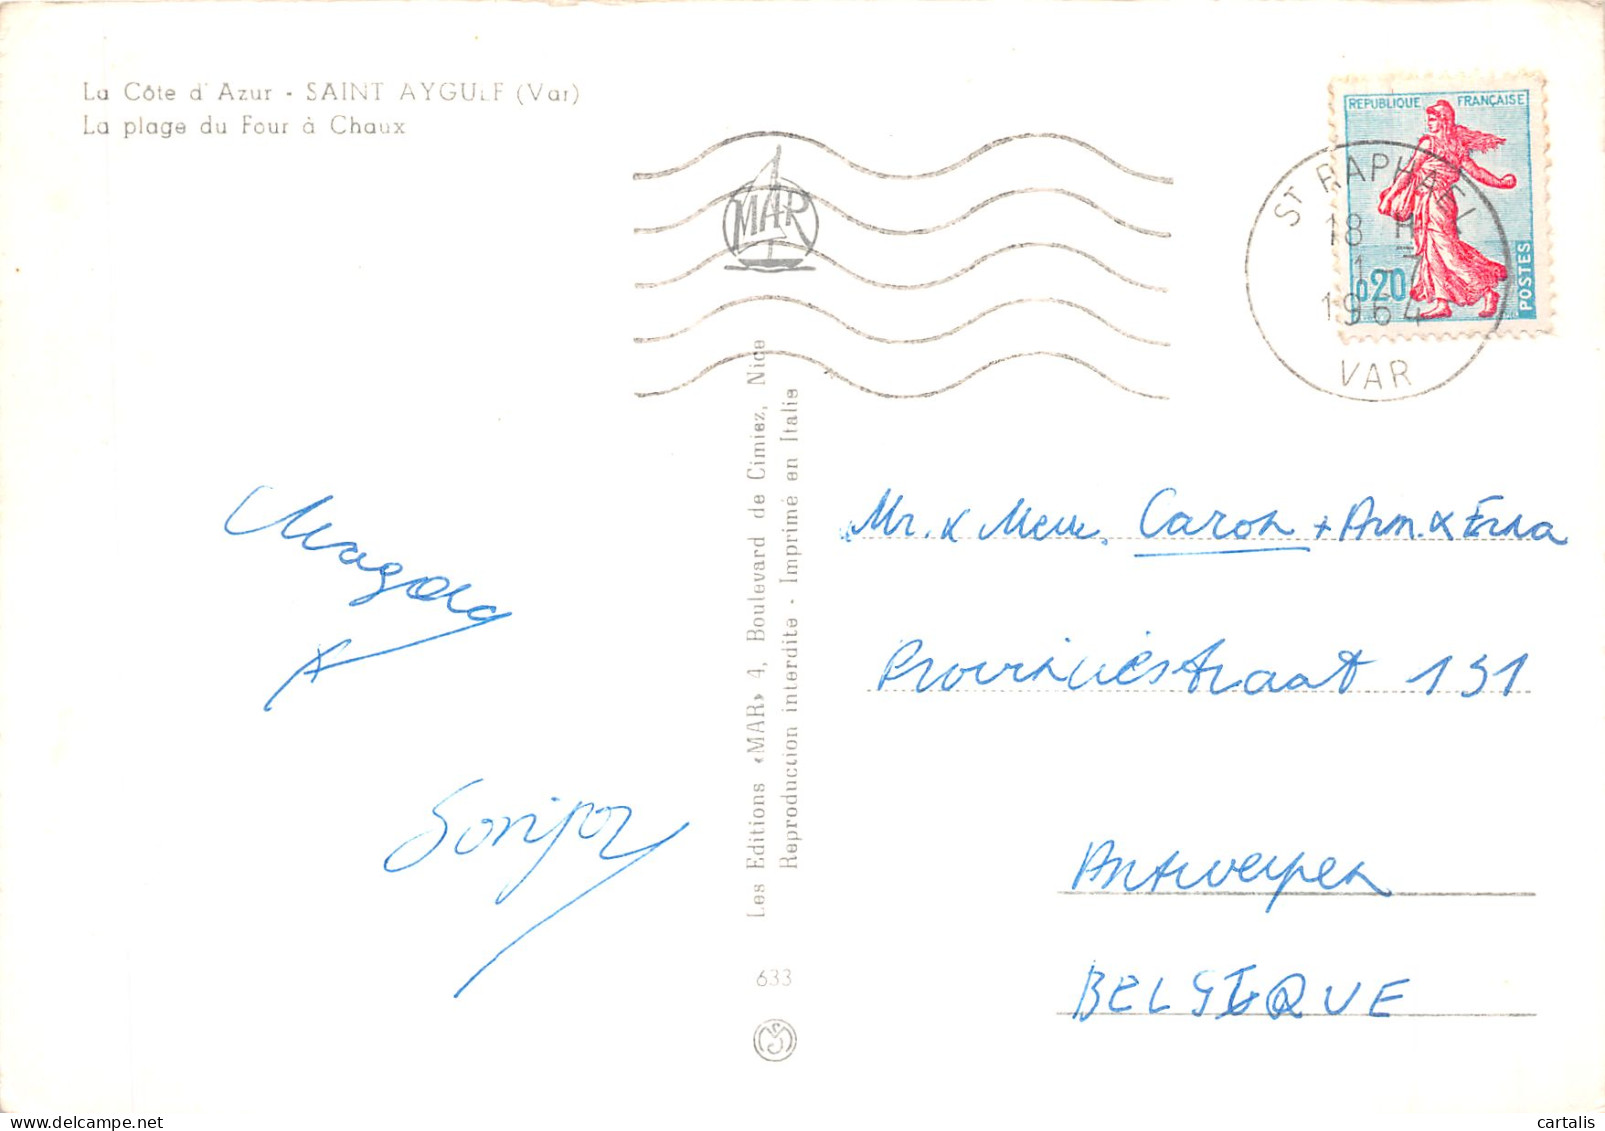 La Côte d'Azur - SAINT AYGULF (Var)
La plage du Four à Chaux
MAR
REPUBLIQUE FRANÇAISE
0,20
POSTES
ST RAPHAEL
18 H
1 - 7
1964
VAR
Les Editions «MAR» 4, Boulevard de Cimiez, Nice
Reproduction interdite - Imprimé en Italie
633
Mr. & Mevr. Caron + Arm. & Erna
Provinciestraat 131
Antwerpen
BELGIQUE
cartalis